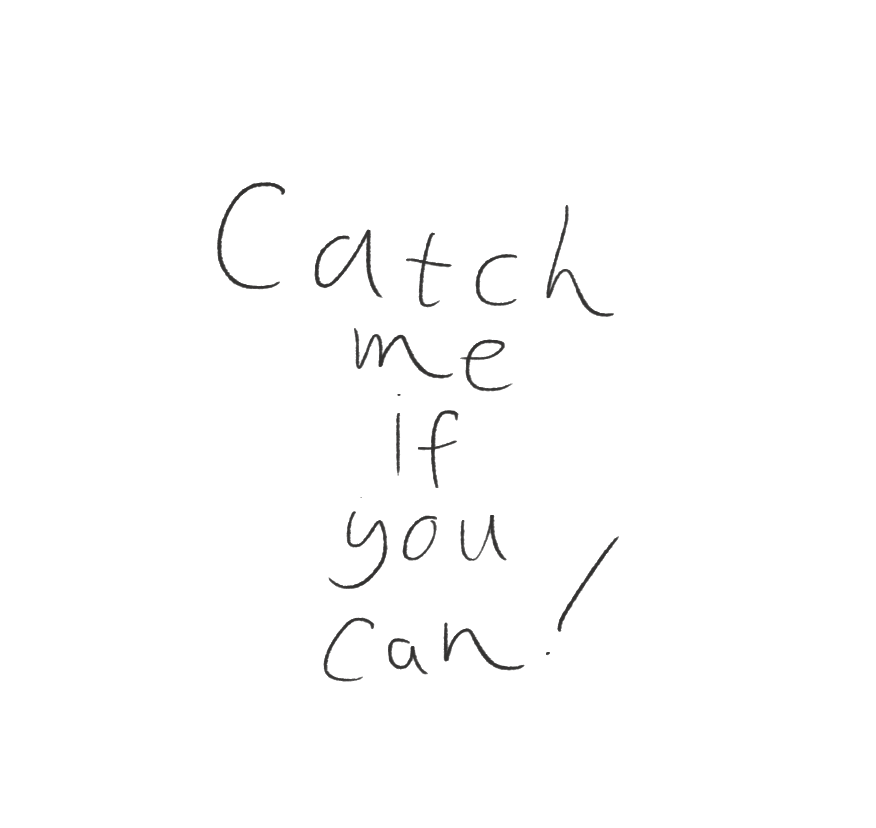 Catch
me
if
you
can!